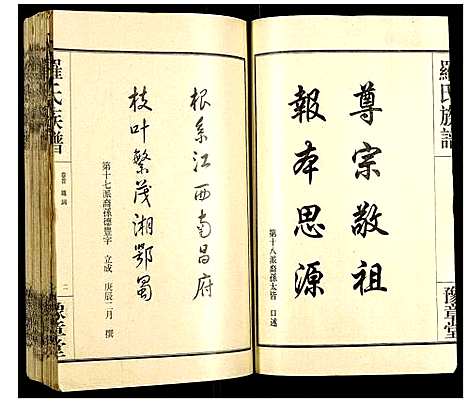 羅氏族譜
尊宗敬祖
報本思源
第十八派裔孫太皆 口述
豫章堂
根系江西南昌府
枝叶繁茂湘鄂蜀
第十七派裔孫德豊字 立成 庚辰二月 撰
羅氏族譜
卷首 題詞
二
豫章堂